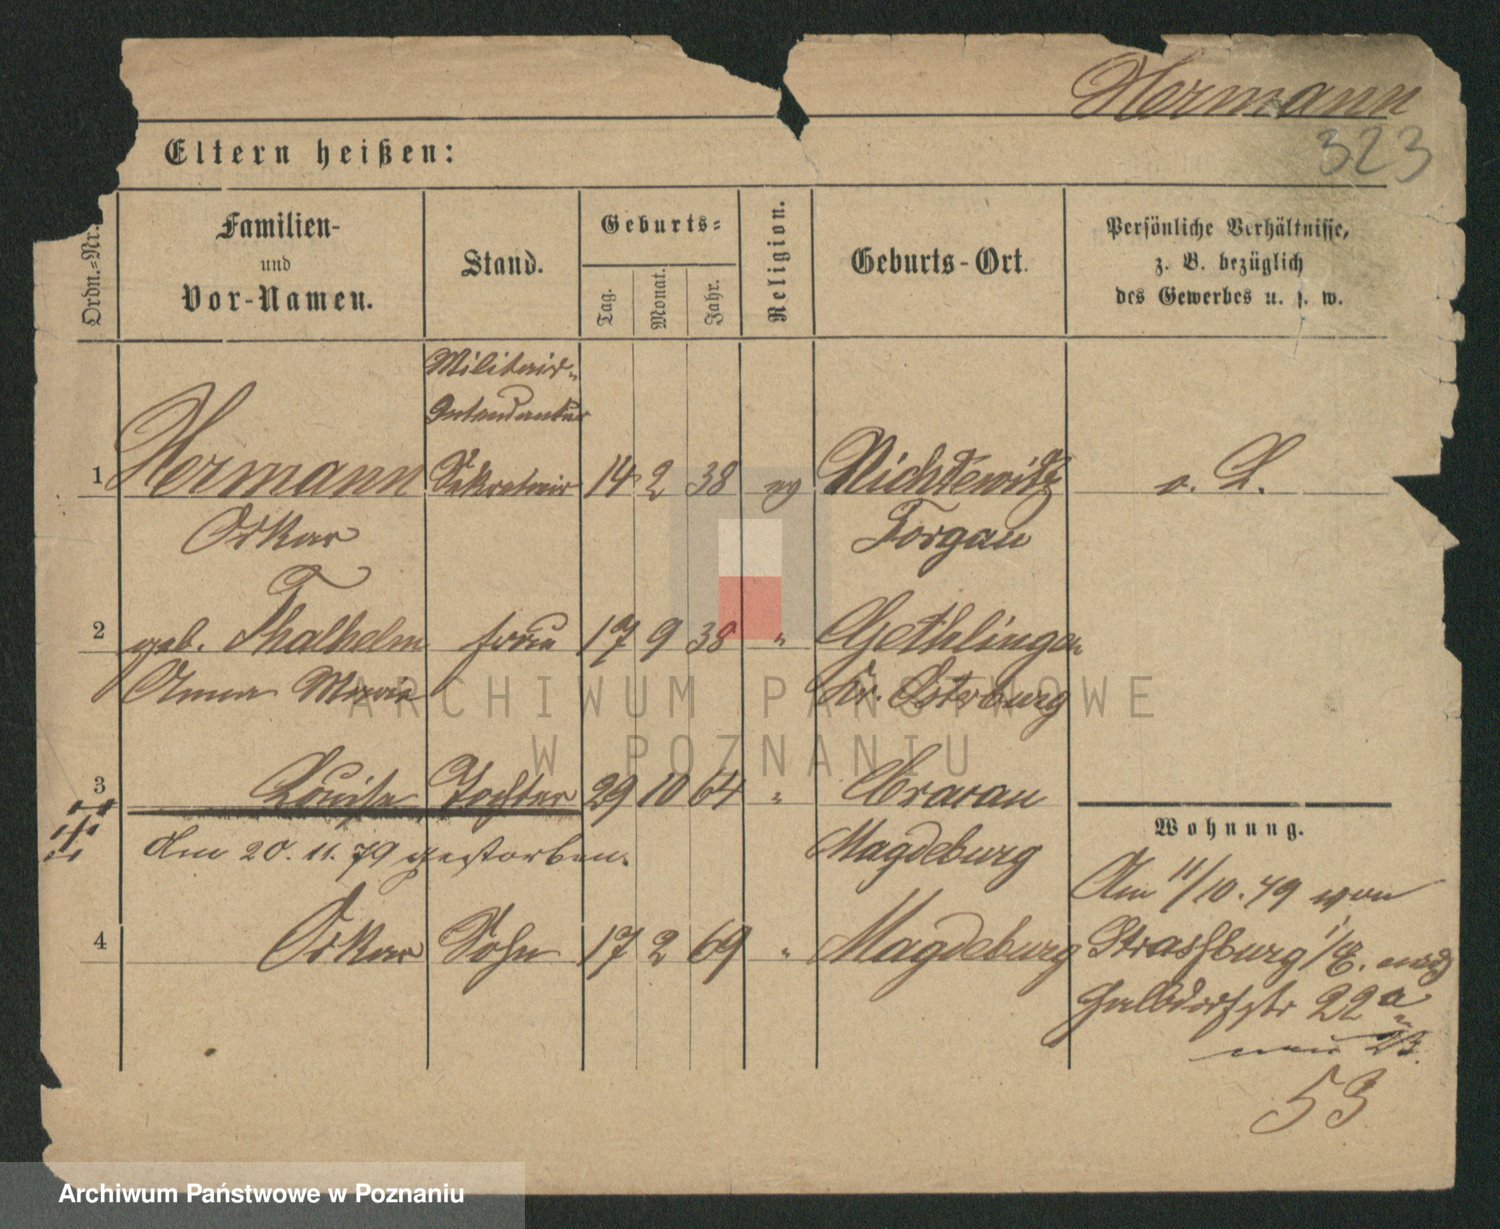 Hermann
323
Eltern heißen:
Ordn.-Nr.
Familien-
und
Vor-Namen.
Stand.
Geburts-
Tag.
Monat.
Jahr.
Religion.
Geburts-Ort.
Persönliche Verhältnisse,
z. B. bezüglich
des Gewerbes u. s. w.
Militair-
Intendantur
1 Hermann Sekretair 14 2 38 ev Nichtewitz s. L.
Oskar Torgau
2 geb. Thalheim Frau 17 9 38 " Gethlingen
Anna Marie Kr. Osterburg
3 Louise Tochter 29 10 64 " Cracau
Am 20. 11. 79 gestorben. Magdeburg
4 Oskar Sohn 17 2 69 " Magdeburg
Wohnung.
Am 11/10. 79 von
Strassburg i/E. nach
Halbdorfstr 22a
neu 23.
53
ARCHIWUM PAŃSTWOWE
W POZNANIU
Archiwum Państwowe w Poznaniu